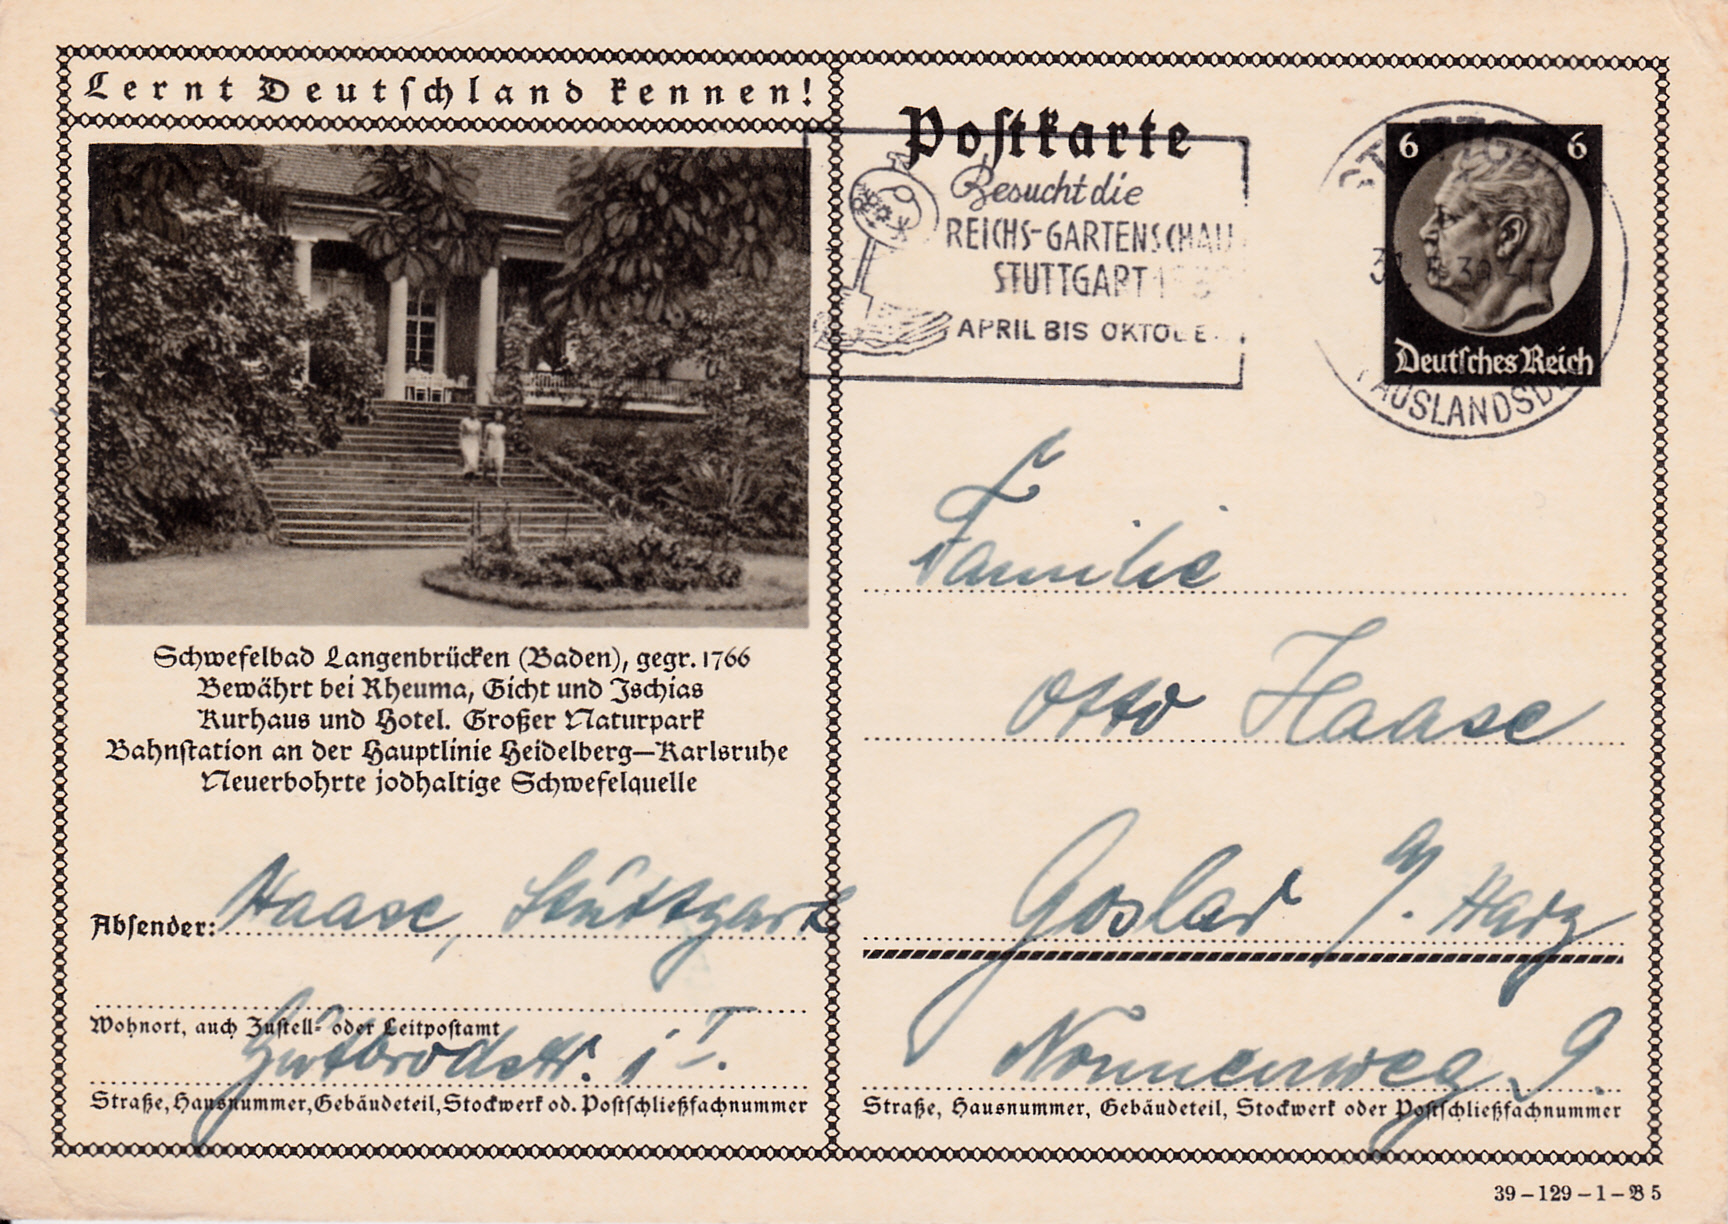 Lernt Deutschland kennen!
Postkarte
Besucht die
REICHS-GARTENSCHAU
STUTTGART 1939
APRIL BIS OKTOBE
6 6
Deutsches Reich
AUSLANDSB
Schwefelbad Langenbrücken (Baden), gegr. 1766
Bewährt bei Rheuma, Gicht und Ischias
Kurhaus und Hotel. Großer Naturpark
Bahnstation an der Hauptlinie Heidelberg—Karlsruhe
Neuerbohrte jodhaltige Schwefelquelle
Absender: Haase, Stuttgart
Wohnort, auch Zustell- oder Leitpostamt
Gutbrodstr. 1 I.
Straße, Hausnummer, Gebäudeteil, Stockwerk od. Postschließfachnummer
Familie
Otto Haase
Goslar a/. Harz
Nonnenweg 9.
Straße, Hausnummer, Gebäudeteil, Stockwerk oder Postschließfachnummer
39 – 129 – 1 – B 5